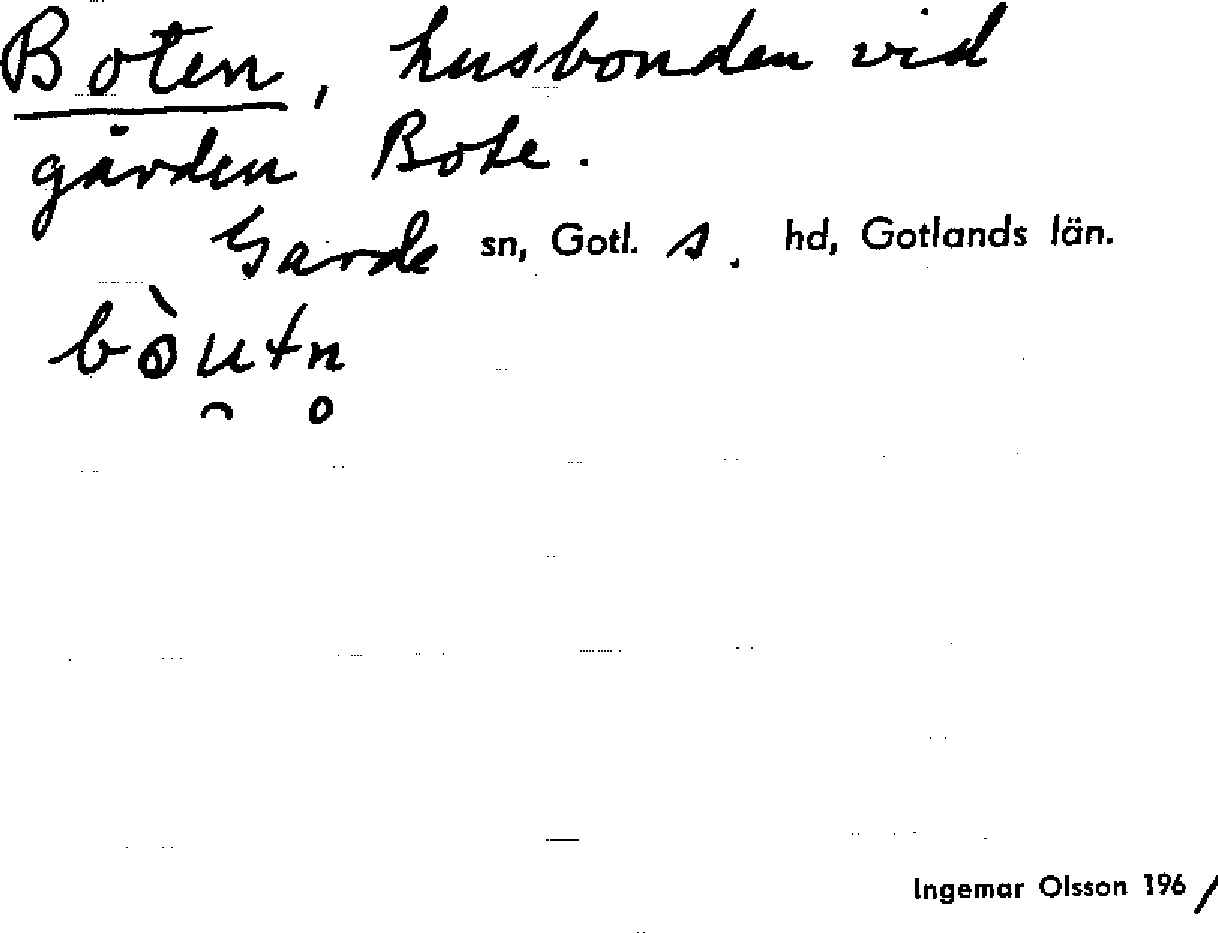 Boten, husbonden vid
gården Bote.
Garde sn, Gotl. s. hd, Gotlands län.
bòu̯tn̥
Ingemar Olsson 196/